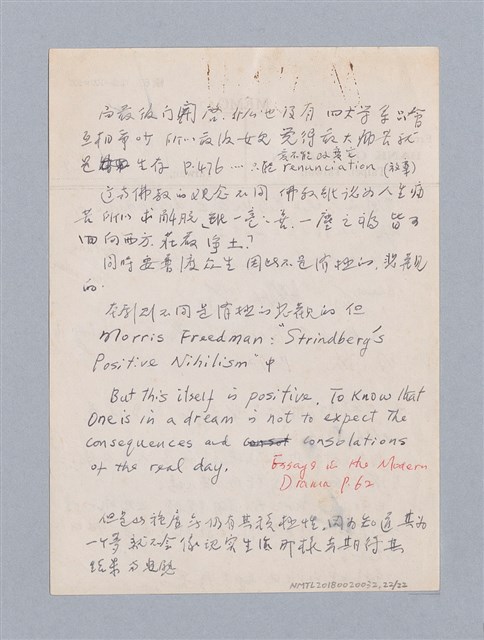 而最後門開啓,什么也沒有 四大学系只會
互相争吵 所以最後女兒覺得最大痛苦就
是 生存 P.476 … 只能 renunciation (放棄)
這与佛教的观念不同 佛教雖認為人生痛
苦所以求解脫,雖一毫之善,一塵之福 皆可
回向西方,莊嚴淨土?
同時要普渡众生 因此不是消極的,悲觀
的.
在劇列不同是消極的悲觀的 但
Morris Freedman: "Strindberg's
Positive Nihilism" 中
But this itself is positive. To know that
One is in a dream is not to expect the
consequences and consolations
of the real day.
Essays in the Modern
Drama P.62
但是此態度 仍有其積極性,因為知道其為
一个夢就不会像現實生活那樣去期待其
結果与慰
NMTL20180020032, 22/22